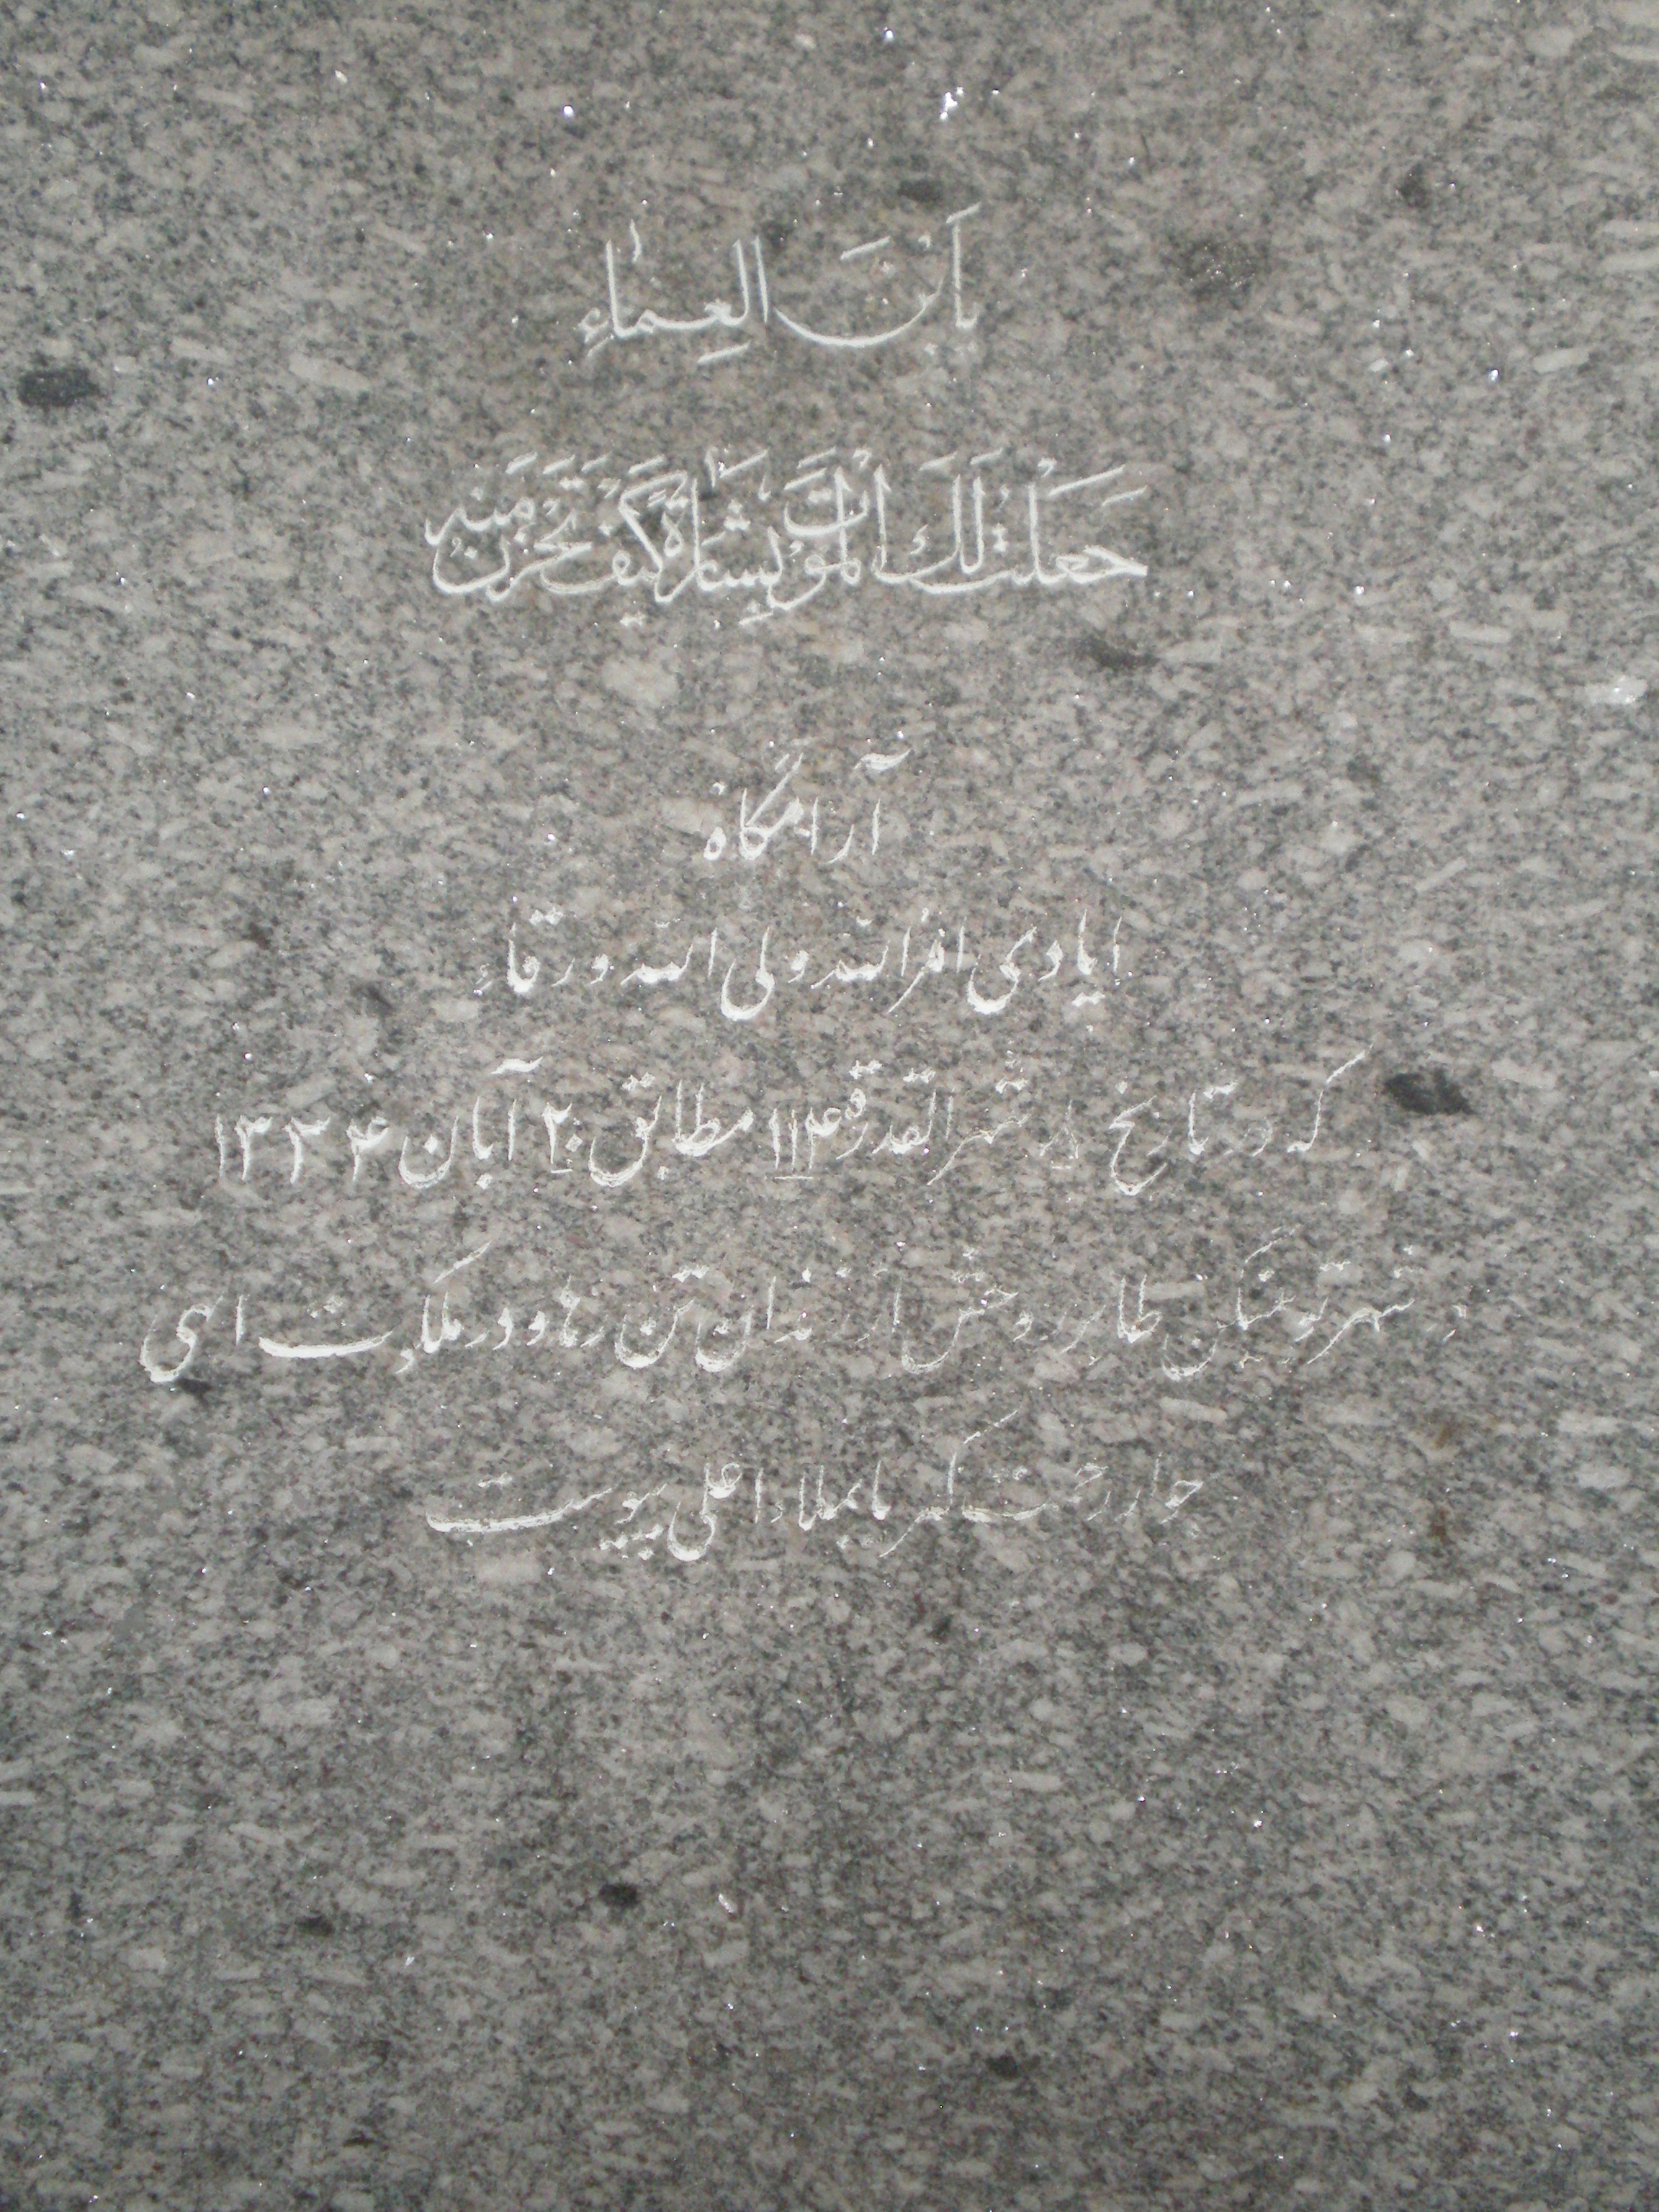 يَا ابْنَ العِمَاءِ
جَعَلْتُ لَكَ المَوْتَ بِشَارَةً كَيْفَ تَحْزَنُ مِنْهُ
آرامگاه
ایادی امرالله ولی الله ورقاء
که در تاریخ شهرالقدرة ۱۱۲ مطابق ۲۰ آبان ۱۳۳۴
در شهر توبینگن طایر روحش از زندان تن رها و در ملکوت الهی
جوار رحمت کبریا بملاء اعلی پیوست